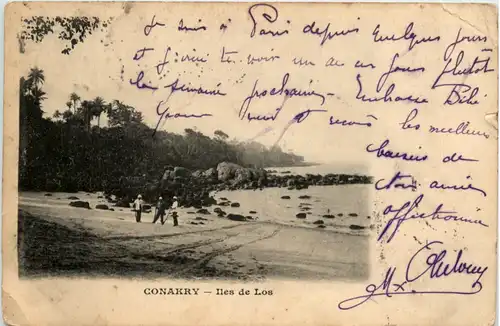 Je suis à Paris depuis quelques jours
et j'irai te voir un de ces jours plutôt
la semaine prochaine. Embrasse Bébé
pour moi et reçois les meilleurs
baisers de
ton ami
affectionné
CONAKRY - Iles de Los